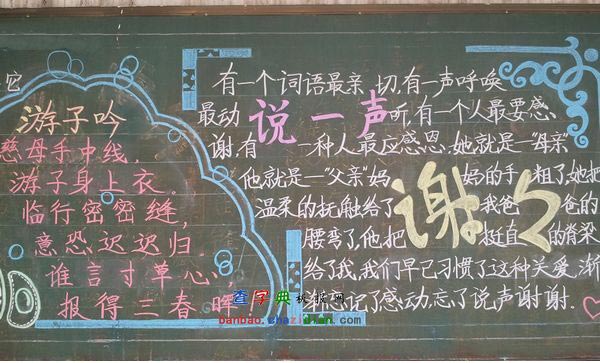 它
游子吟
慈母手中线,
游子身上衣。
临行密密缝,
意恐迟迟归。
谁言寸草心,
报得三春晖!
说一声
谢々
有一个词语最亲切,有一声呼唤
最动听,有一个人最要感
谢,有一种人最应感恩,她就是一“母亲
他就是一“父亲”妈妈的手粗了,她把
温柔的抚触给了我爸爸的
腰弯了,他把挺直的脊梁
给了我,我们早已习惯了这种关爱,渐
记了感动,忘了说声谢谢.
查字典板报网
banbao.chazidian.com